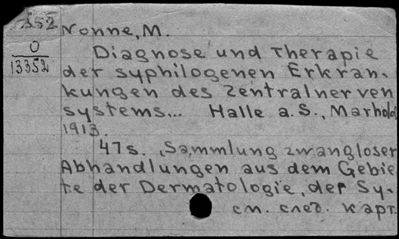 352
O
13352
Nonne, M.
Diagnose und Therapie
der syphilogenen Erkran-
kungen des Zentralnerven
systems... Halle a. S., Marhold
1913.
47s. „Sammlung zwangloser
Abhandlungen aus dem Gebie
te der Dermatologie, der Sy-
см. след. карт.